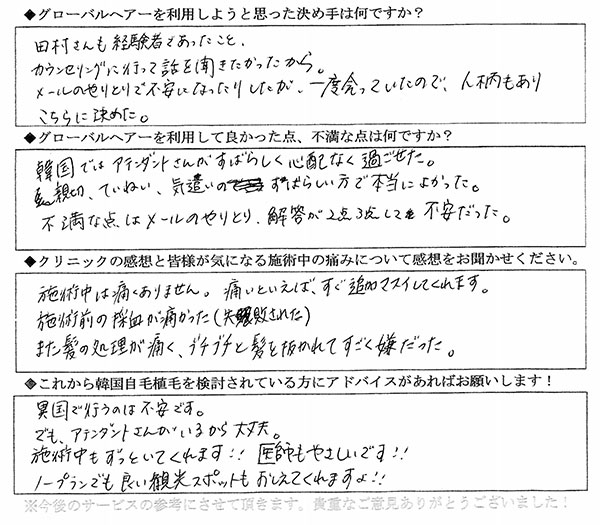 ◆グローバルヘアーを利用しようと思った決め手は何ですか?
田村さんも経験者であったこと、
カウンセリングに行って話を聞きたかったから。
メールのやりとりで不安になったりしたが、一度会っていたので、人柄もあり
こちらに決めた。
◆グローバルヘアーを利用して良かった点、不満な点は何ですか?
韓国ではアテンダントさんがすばらしく心配なく過ごせた。
親切、ていねい、気遣いの すばらしい方で本当によかった。
不満な点はメールのやりとり、解答が2点3点して 不安だった。
◆クリニックの感想と皆様が気になる施術中の痛みについて感想をお聞かせください。
施術中は痛くありません。痛いといえば、すぐ追加マスイしてくれます。
施術前の採血が痛かった(失敗された)
また髪の処理が痛く、ブチブチと髪を抜かれてすごく嫌だった。
◆これから韓国自毛植毛を検討されている方にアドバイスがあればお願いします!
異国で行うのは不安です。
でも、アテンダントさんがいるから大丈夫。
施術中もずっといてくれます!! 医師もやさしいです!!
ノープランでも良い観光スポットもおしえてくれますよ!!
※今後のサービスの参考にさせて頂きます。貴重なご意見ありがとうございました!